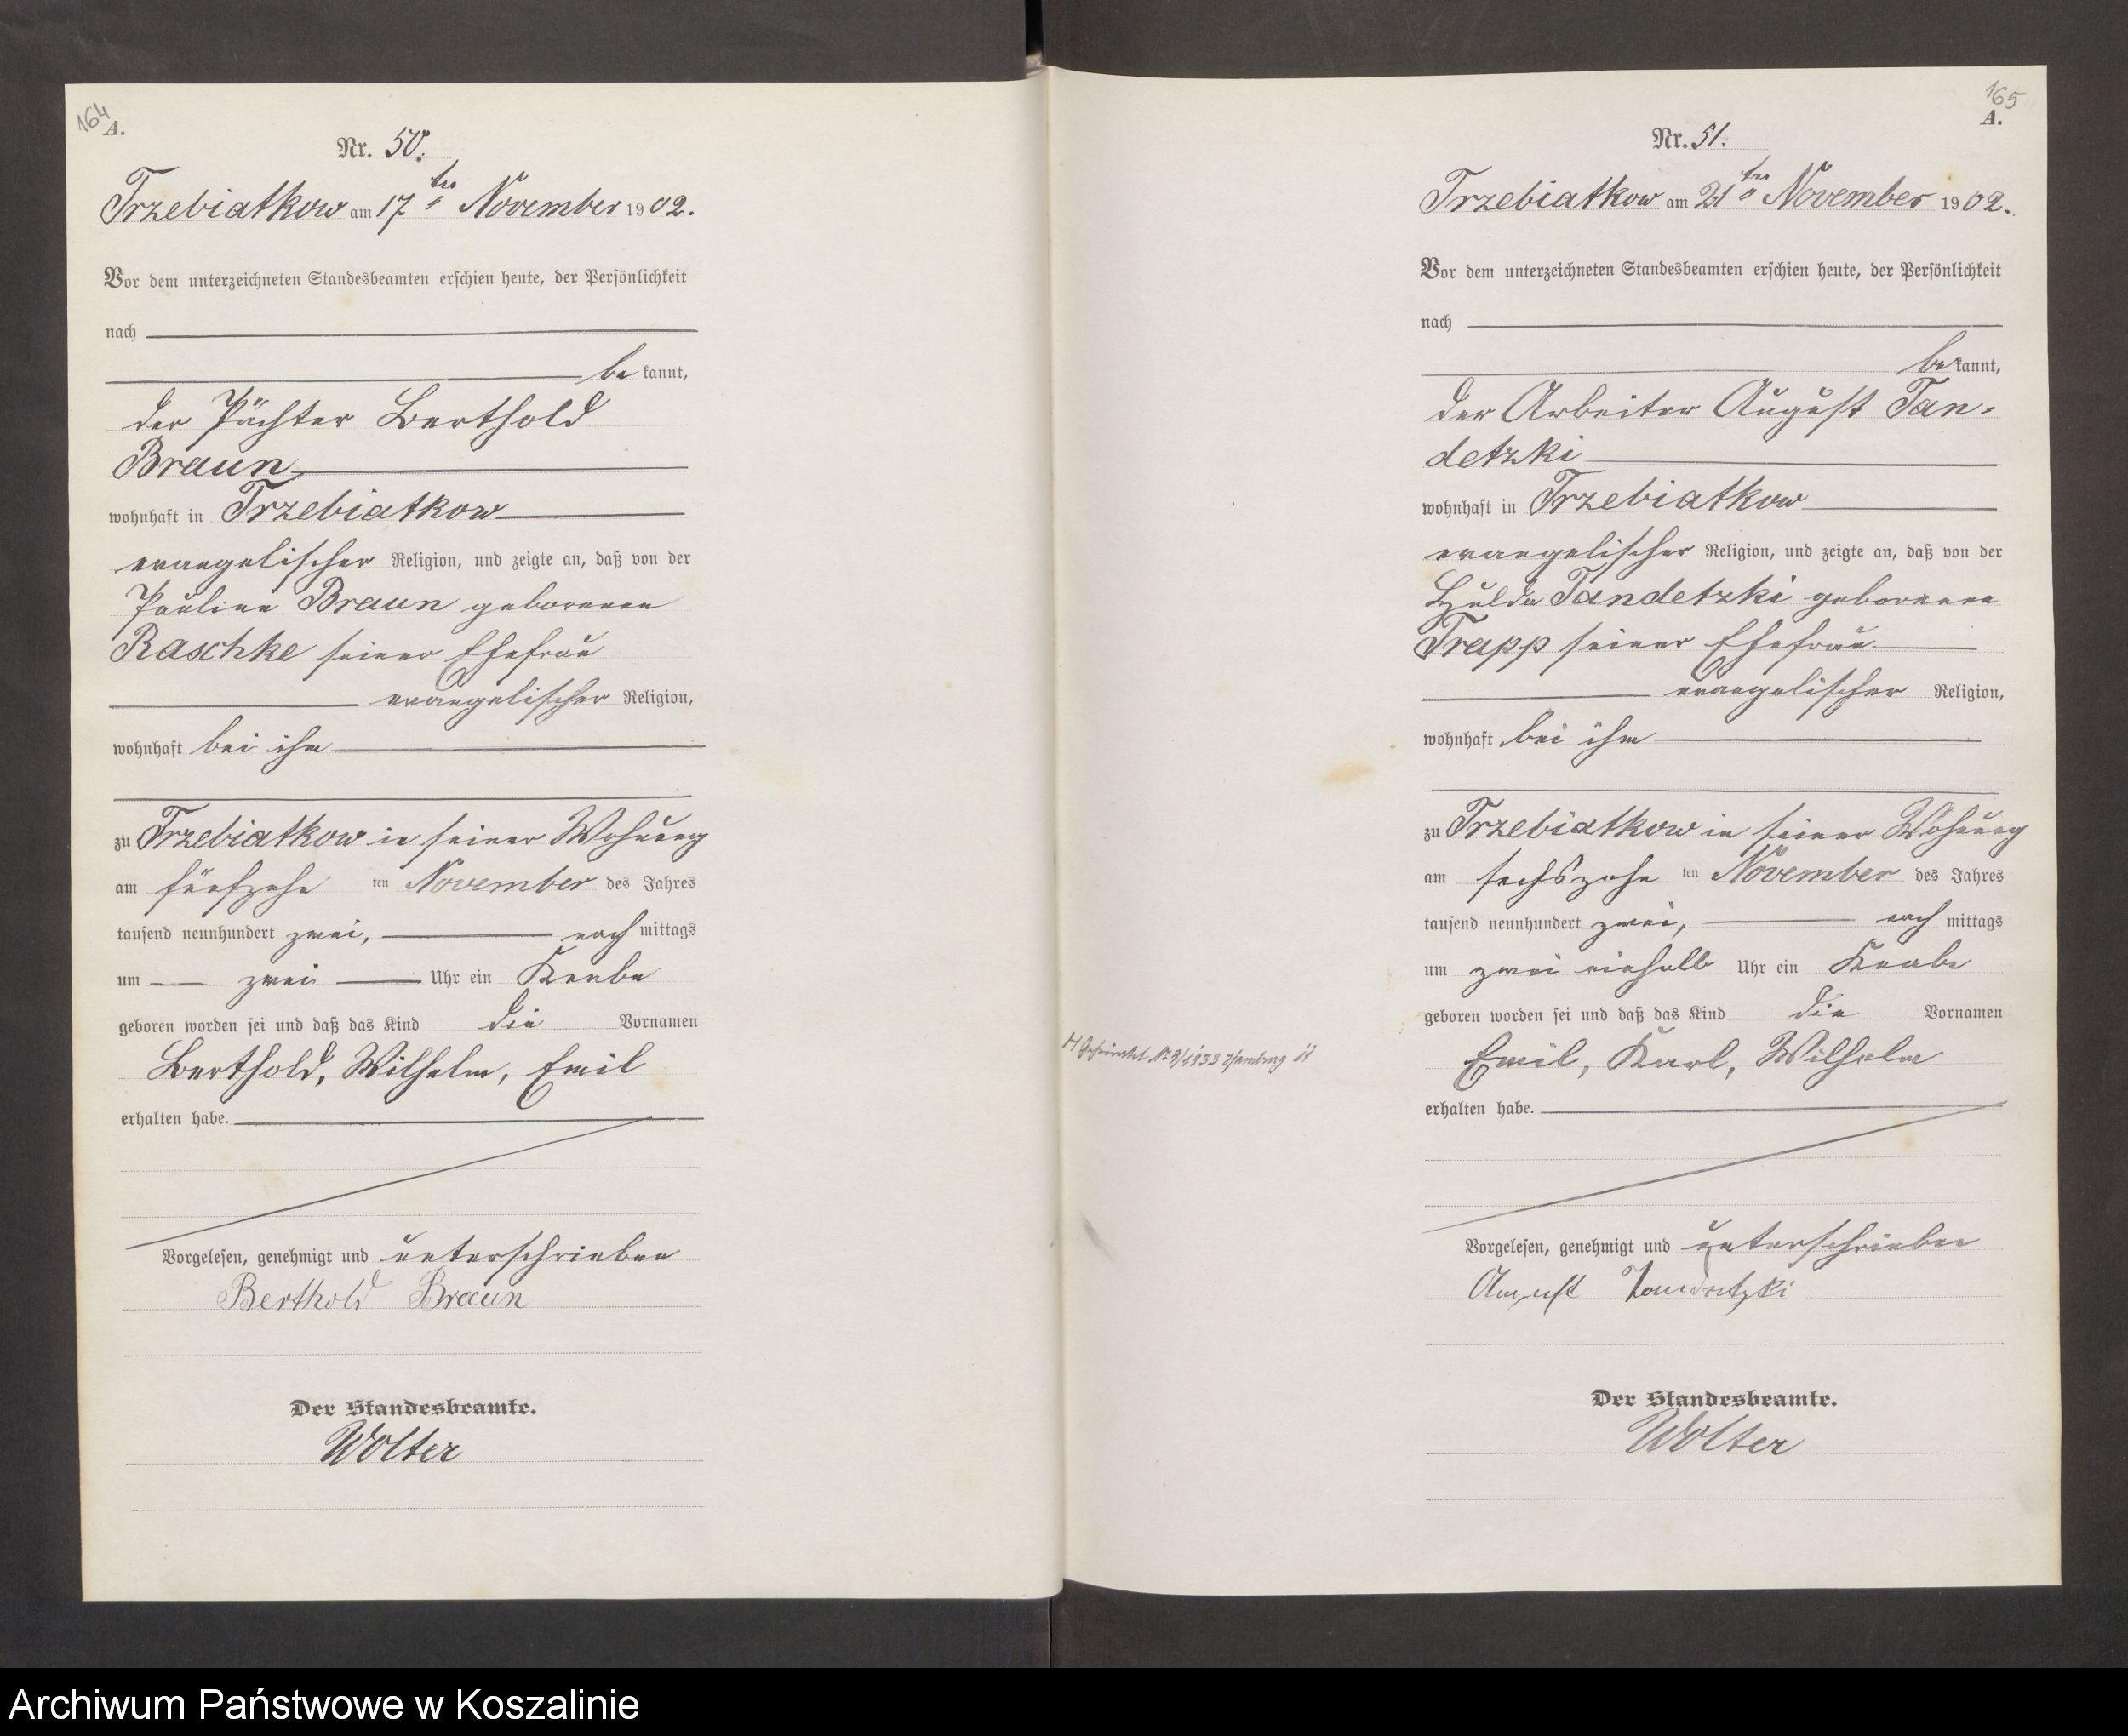 164
A.
Nr. 50.
Trzebiatkow am 17ten November 1902.
Vor dem unterzeichneten Standesbeamten erschien heute, der Persönlichkeit
nach
be kannt,
der Pächter Berthold
Braun
wohnhaft in Trzebiatkow
evangelischer Religion, und zeigte an, daß von der
Pauline Braun geborenen
Raschke seiner Ehefrau
evangelischer Religion,
wohnhaft bei ihm
zu Trzebiatkow in seiner Wohnung
am fünfzehn ten November des Jahres
tausend neunhundert zwei, nach mittags
um zwei Uhr ein Knabe
geboren worden sei und daß das Kind die Vornamen
Berthold, Wilhelm, Emil
erhalten habe.
Vorgelesen, genehmigt und unterschrieben
Berthold Braun
Der Standesbeamte.
Wolter
165
A.
Nr. 51.
Trzebiatkow am 21ten November 1902.
Vor dem unterzeichneten Standesbeamten erschien heute, der Persönlichkeit
nach
be kannt,
der Arbeiter August Tan-
detzki
wohnhaft in Trzebiatkow
evangelischer Religion, und zeigte an, daß von der
Hulda Tandetzki geborenen
Trapp seiner Ehefrau
evangelischer Religion,
wohnhaft bei ihm
zu Trzebiatkow in seiner Wohnung
am sechszehn ten November des Jahres
tausend neunhundert zwei, nach mittags
um zwei einhalb Uhr ein Knabe
geboren worden sei und daß das Kind die Vornamen
Emil, Karl, Wilhelm
erhalten habe.
Nr 9/1933 Hamburg
Vorgelesen, genehmigt und unterschrieben
August Tandetzki
Der Standesbeamte.
Wolter
Archiwum Państwowe w Koszalinie